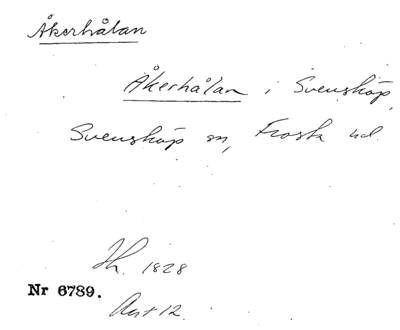 Åkerhålan
Åkerhålan i Svensköp,
Svensköp sn, Frosta hd.
Jh. 1828
Nr 6789.
Avst 12.